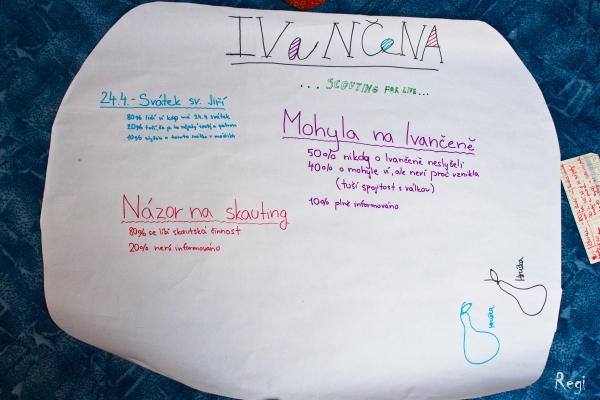 IVaNČeNA
... SCOUTING FOR LIFE...
24.4.-Svátek sv. Jiří
80% lidí ví kdo má 24.4 svátek
20% tuší, že je to nějaký svatý a patron
10% slyšelo o tomto svátku v médiích
Mohyla na Ivančeně
50% nikdy o Ivančeně neslyšeli
40% o mohyle ví, ale neví proč vznikla
(tuší spojitost s válkou)
10% plně informováno
Názor na skauting
80% se líbí skautská činnost
20% není informováno
Hruška
Hruška
Regi